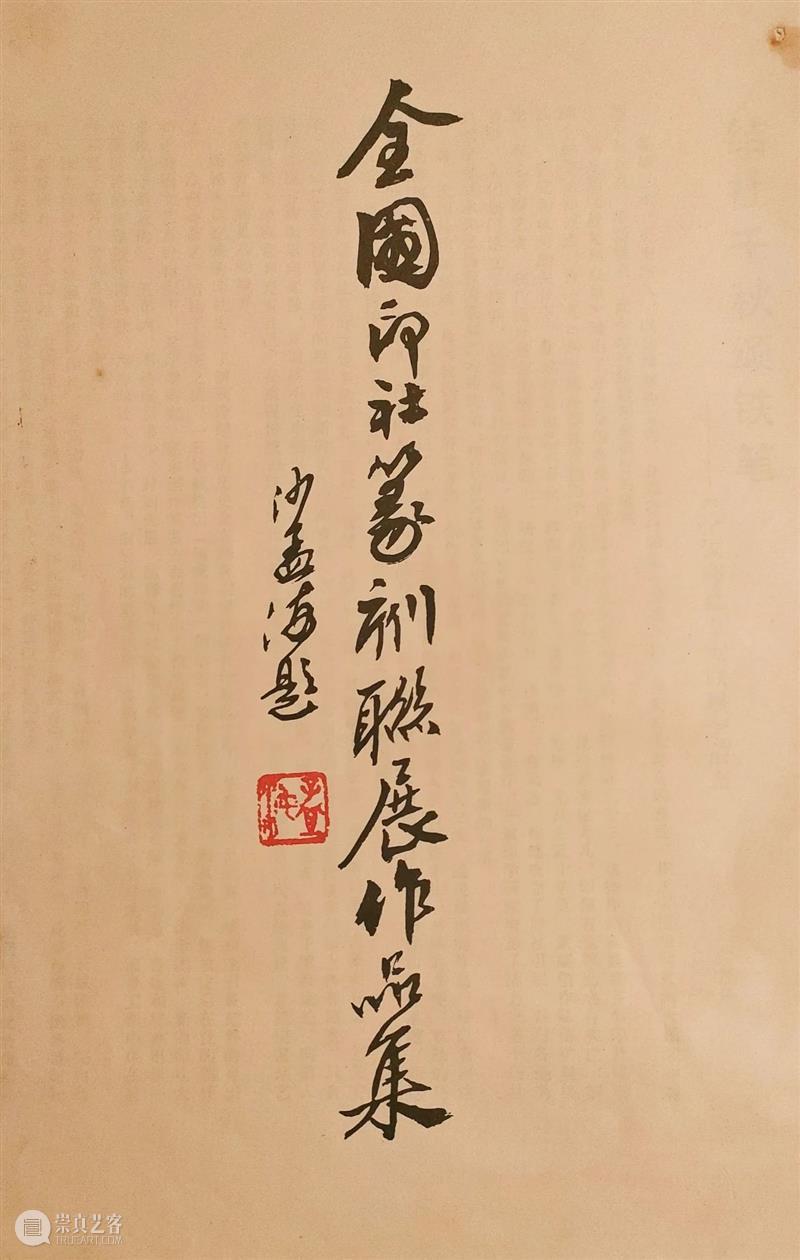 全國印社篆刻聯展作品集
沙孟海題
崇真艺客
TRUEART.COM